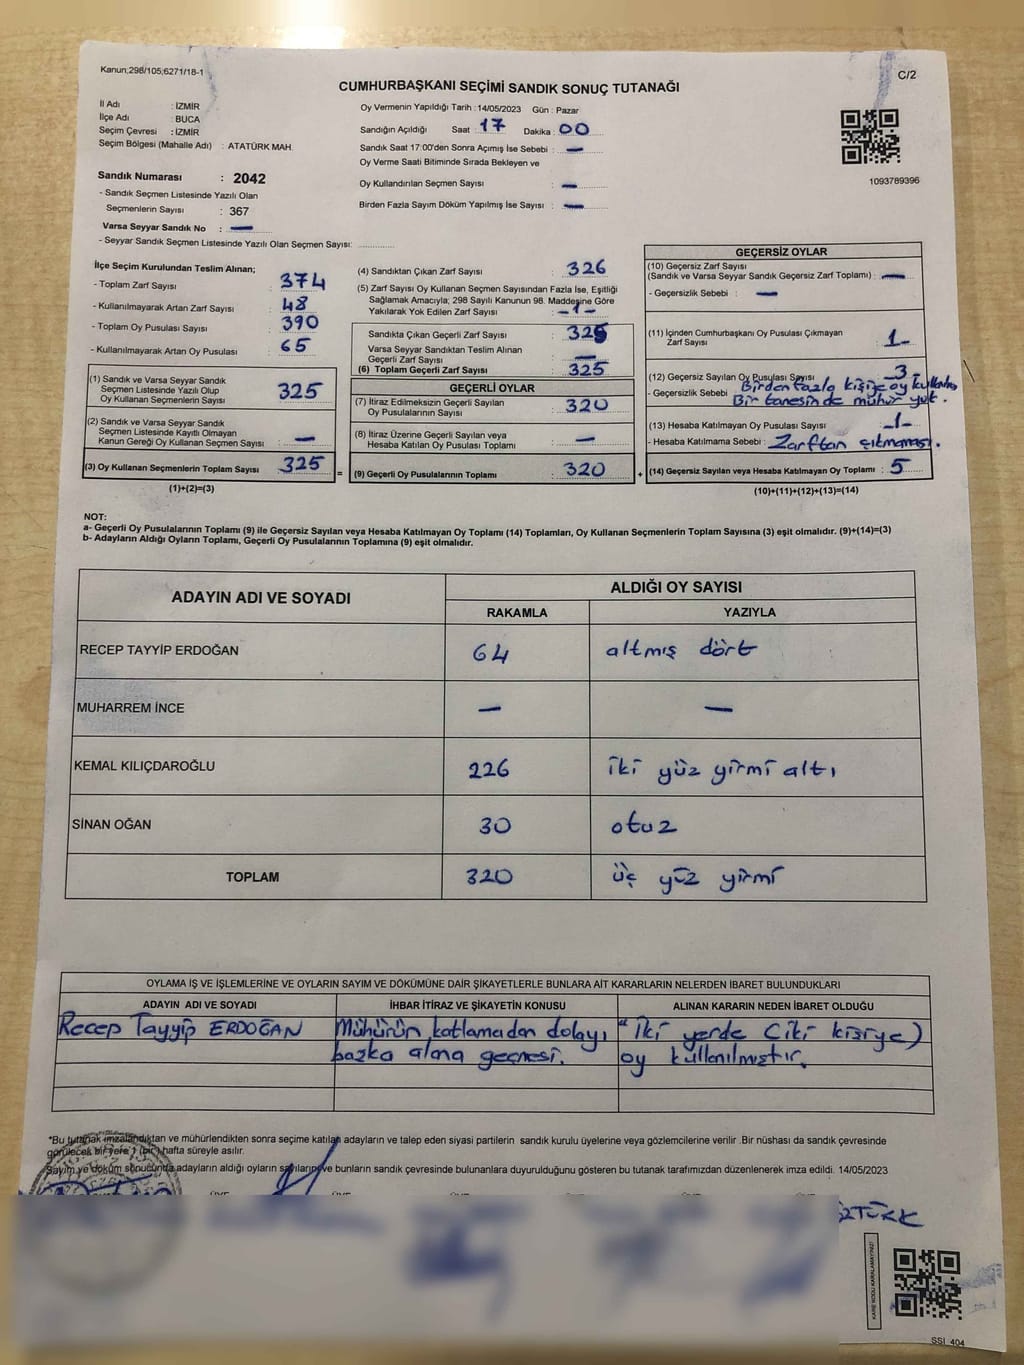 Kanun;298/105;6271/18-1
C/2
CUMHURBAŞKANI SEÇİMİ SANDIK SONUÇ TUTANAĞI
İl Adı : İZMİR
İlçe Adı : BUCA
Seçim Çevresi : İZMİR
Seçim Bölgesi (Mahalle Adı) : ATATÜRK MAH.
Sandık Numarası : 2042
- Sandık Seçmen Listesinde Yazılı Olan
Seçmenlerin Sayısı : 367
Varsa Seyyar Sandık No : —
- Seyyar Sandık Seçmen Listesinde Yazılı Olan Seçmen Sayısı: ............
Oy Vermenin Yapıldığı Tarih : 14/05/2023 Gün : Pazar
Sandığın Açıldığı Saat : 17 Dakika : 00
Sandık Saat 17:00'den Sonra Açımış İse Sebebi : —
Oy Verme Saati Bitiminde Sırada Bekleyen ve
Oy Kullandırılan Seçmen Sayısı : —
Birden Fazla Sayım Döküm Yapılmış İse Sayısı : —
1093789396
İlçe Seçim Kurulundan Teslim Alınan;
- Toplam Zarf Sayısı : 374
- Kullanılmayarak Artan Zarf Sayısı : 48
- Toplam Oy Pusulası Sayısı : 390
- Kullanılmayarak Artan Oy Pusulası : 65
(1) Sandık ve Varsa Seyyar Sandık
Seçmen Listesinde Yazılı Olup
Oy Kullanan Seçmenlerin Sayısı : 325
(2) Sandık ve Varsa Seyyar Sandık
Seçmen Listesinde Kayıtlı Olmayan
Kanun Gereği Oy Kullanan Seçmen Sayısı : —
(3) Oy Kullanan Seçmenlerin Toplam Sayısı : 325
(1)+(2)=(3)
=
(4) Sandıktan Çıkan Zarf Sayısı : 326
(5) Zarf Sayısı Oy Kullanan Seçmen Sayısından Fazla İse, Eşitliği
Sağlamak Amacıyla; 298 Sayılı Kanunun 98. Maddesine Göre
Yakılarak Yok Edilen Zarf Sayısı : -1-
Sandıkta Çıkan Geçerli Zarf Sayısı : 325
Varsa Seyyar Sandıktan Teslim Alınan
Geçerli Zarf Sayısı : —
(6) Toplam Geçerli Zarf Sayısı : 325
GEÇERLİ OYLAR
(7) İtiraz Edilmeksizin Geçerli Sayılan
Oy Pusulalarının Sayısı : 320
(8) İtiraz Üzerine Geçerli Sayılan veya
Hesaba Katılan Oy Pusulası Toplamı : —
(9) Geçerli Oy Pusulalarının Toplamı : 320
+
GEÇERSİZ OYLAR
(10) Geçersiz Zarf Sayısı
(Sandık ve Varsa Seyyar Sandık Geçersiz Zarf Toplamı) : —
- Geçersizlik Sebebi : —
(11) İçinden Cumhurbaşkanı Oy Pusulası Çıkmayan
Zarf Sayısı : 1-
(12) Geçersiz Sayılan Oy Pusulası Sayısı : 3
- Geçersizlik Sebebi : Birden fazla kişiye oy kullanılması
Bir tanesinde mühür yok.
(13) Hesaba Katılmayan Oy Pusulası Sayısı : -1-
- Hesaba Katılmama Sebebi : Zarftan çıkmaması.
(14) Geçersiz Sayılan veya Hesaba Katılmayan Oy Toplamı : 5
(10)+(11)+(12)+(13)=(14)
NOT:
a- Geçerli Oy Pusulalarının Toplamı (9) ile Geçersiz Sayılan veya Hesaba Katılmayan Oy Toplamı (14) Toplamları, Oy Kullanan Seçmenlerin Toplam Sayısına (3) eşit olmalıdır. (9)+(14)=(3)
b- Adayların Aldığı Oyların Toplamı, Geçerli Oy Pusulalarının Toplamına (9) eşit olmalıdır.
ADAYIN ADI VE SOYADI
ALDIĞI OY SAYISI
RAKAMLA YAZIYLA
RECEP TAYYİP ERDOĞAN 64 altmış dört
MUHARREM İNCE — —
KEMAL KILIÇDAROĞLU 226 iki yüz yirmi altı
SİNAN OĞAN 30 otuz
TOPLAM 320 üç yüz yirmi
OYLAMA İŞ VE İŞLEMLERİNE VE OYLARIN SAYIM VE DÖKÜMÜNE DAİR ŞİKAYETLERLE BUNLARA AİT KARARLARIN NELERDEN İBARET BULUNDUKLARI
ADAYIN ADI VE SOYADI İHBAR İTİRAZ VE ŞİKAYETİN KONUSU ALINAN KARARIN NEDEN İBARET OLDUĞU
Recep Tayyip ERDOĞAN Mühürün katlamadan dolayı "İki yerde (iki kişiye)
başka alana geçmesi. oy kullanılmıştır.
*Bu tutanak imzalandıktan ve mühürlendikten sonra seçime katılan adayların ve talep eden siyasi partilerin sandık kurulu üyelerine veya gözlemcilerine verilir .Bir nüshası da sandık çevresinde
görülecek bir yere 1 (bir) hafta süreyle asılır.
Sayım ve döküm sonucunda adayların aldığı oyların sayılarını ve bunların sandık çevresinde bulunanlara duyurulduğunu gösteren bu tutanak tarafımızdan düzenlenerek imza edildi. 14/05/2023
ÖZTÜRK
KARE KODU KARALAMAYINIZ!
SSI 404